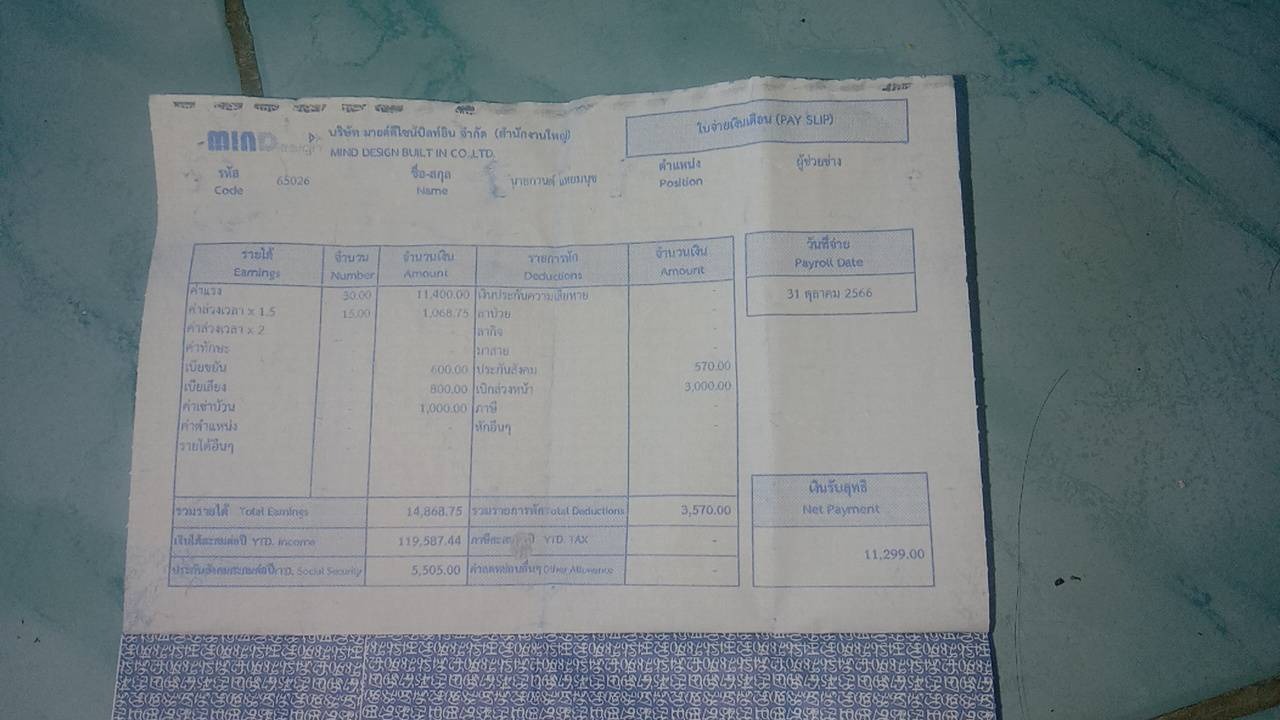 MIND Design
บริษัท มายด์ดีไซน์บิลท์อิน จำกัด (สำนักงานใหญ่)
MIND DESIGN BUILT IN CO.,LTD.
ใบจ่ายเงินเดือน (PAY SLIP)
รหัส 65026 ชื่อ-สกุล ตำแหน่ง ผู้ช่วยช่าง
Code Name Position
รายได้ จำนวน จำนวนเงิน รายการหัก จำนวนเงิน
Earnings Number Amount Deductions Amount
วันที่จ่าย
Payroll Date
31 ตุลาคม 2566
ค่าแรง 30.00 11,400.00 เงินประกันความเสียหาย -
ค่าล่วงเวลา x 1.5 15.00 1,068.75 ลาป่วย -
ค่าล่วงเวลา x 2 ลากิจ -
ค่าทักษะ มาสาย -
เบี้ยขยัน 600.00 ประกันสังคม 570.00
เบี้ยเลี้ยง 800.00 เบิกล่วงหน้า 3,000.00
ค่าเช่าบ้าน 1,000.00 ภาษี -
ค่าตำแหน่ง หักอื่นๆ -
รายได้อื่นๆ
รวมรายได้ Total Earnings 14,868.75 รวมรายการหัก Total Deductions 3,570.00
เงินได้สะสมต่อปี YTD. Income 119,587.44 YTD. TAX -
ประกันสังคมสะสมต่อปี YTD. Social Security 5,505.00 ค่าลดหย่อนอื่นๆ Other Allowance -
เงินรับสุทธิ
Net Payment
11,299.00